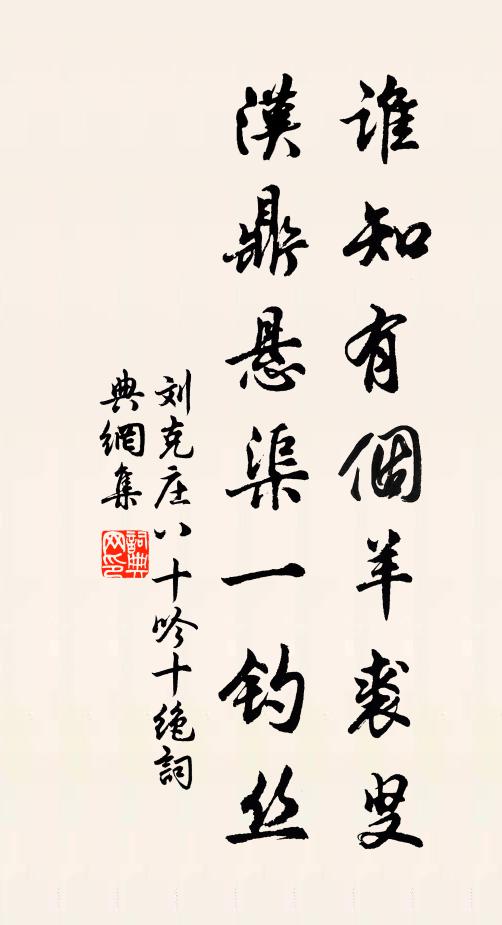 谁知有個羊裘叟
漢鼎悬渠一钓丝
刘克庄八十吟十绝詞
典網集
詞典网印